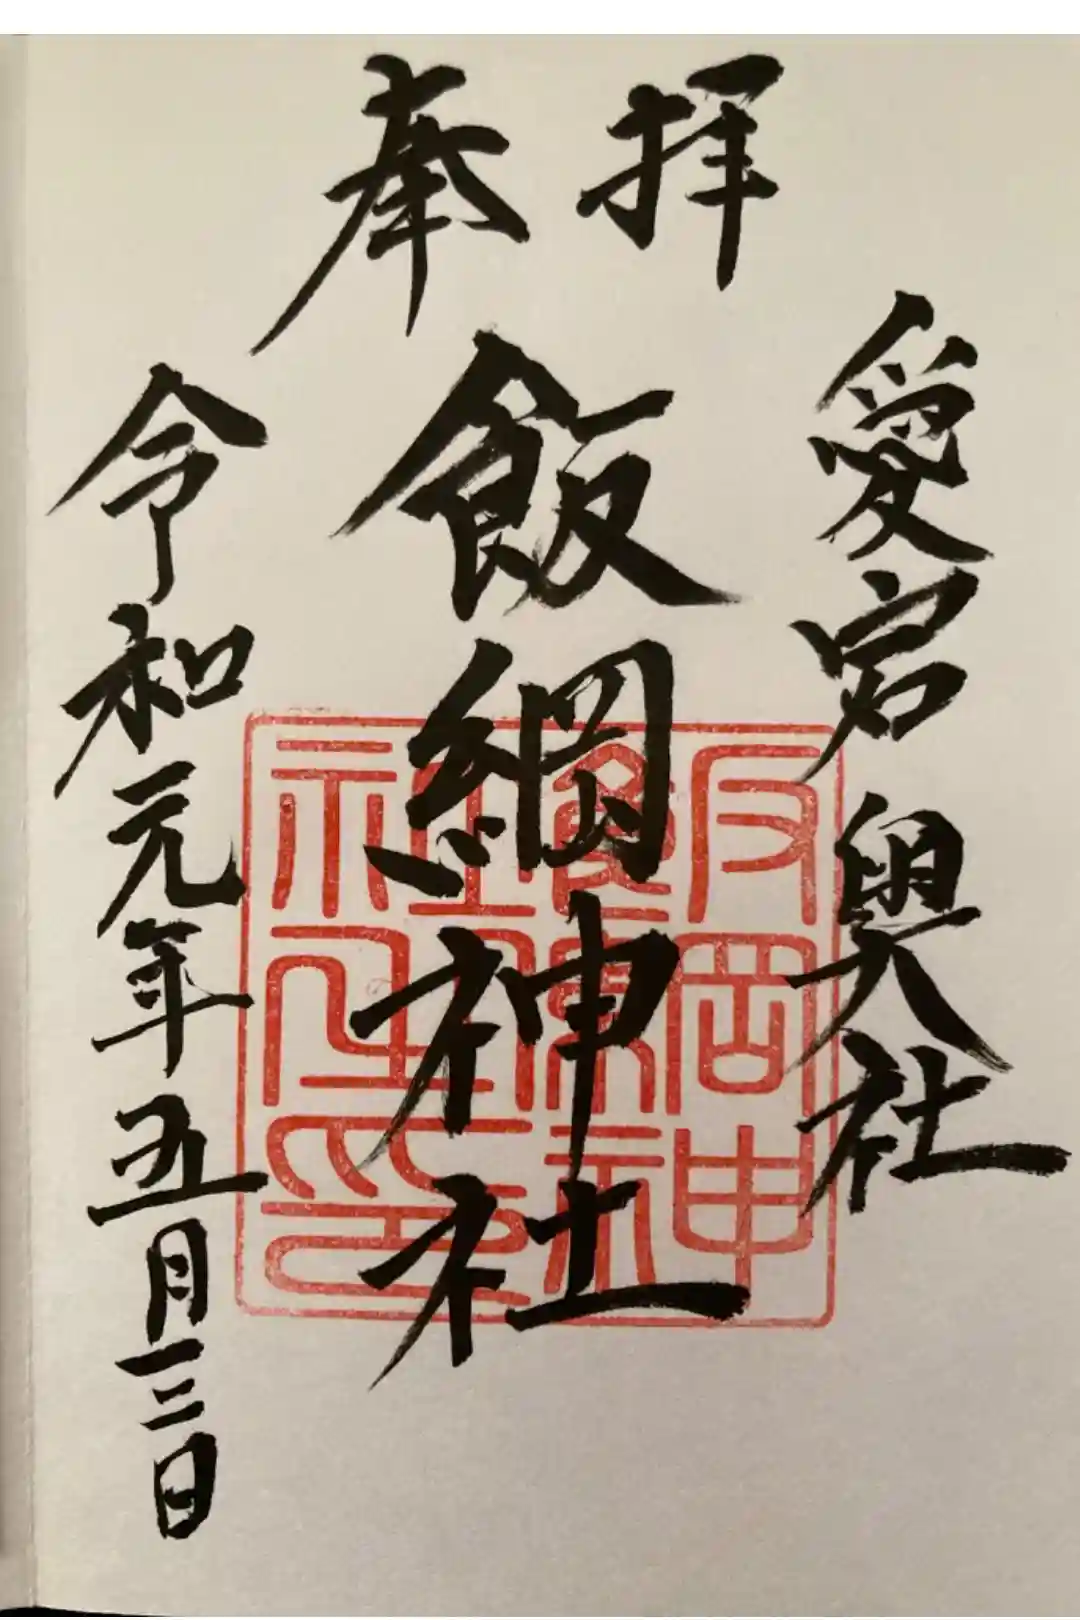 奉拝
愛宕奥社
飯綱神社
令和元年五月三日
飯綱神
社之印